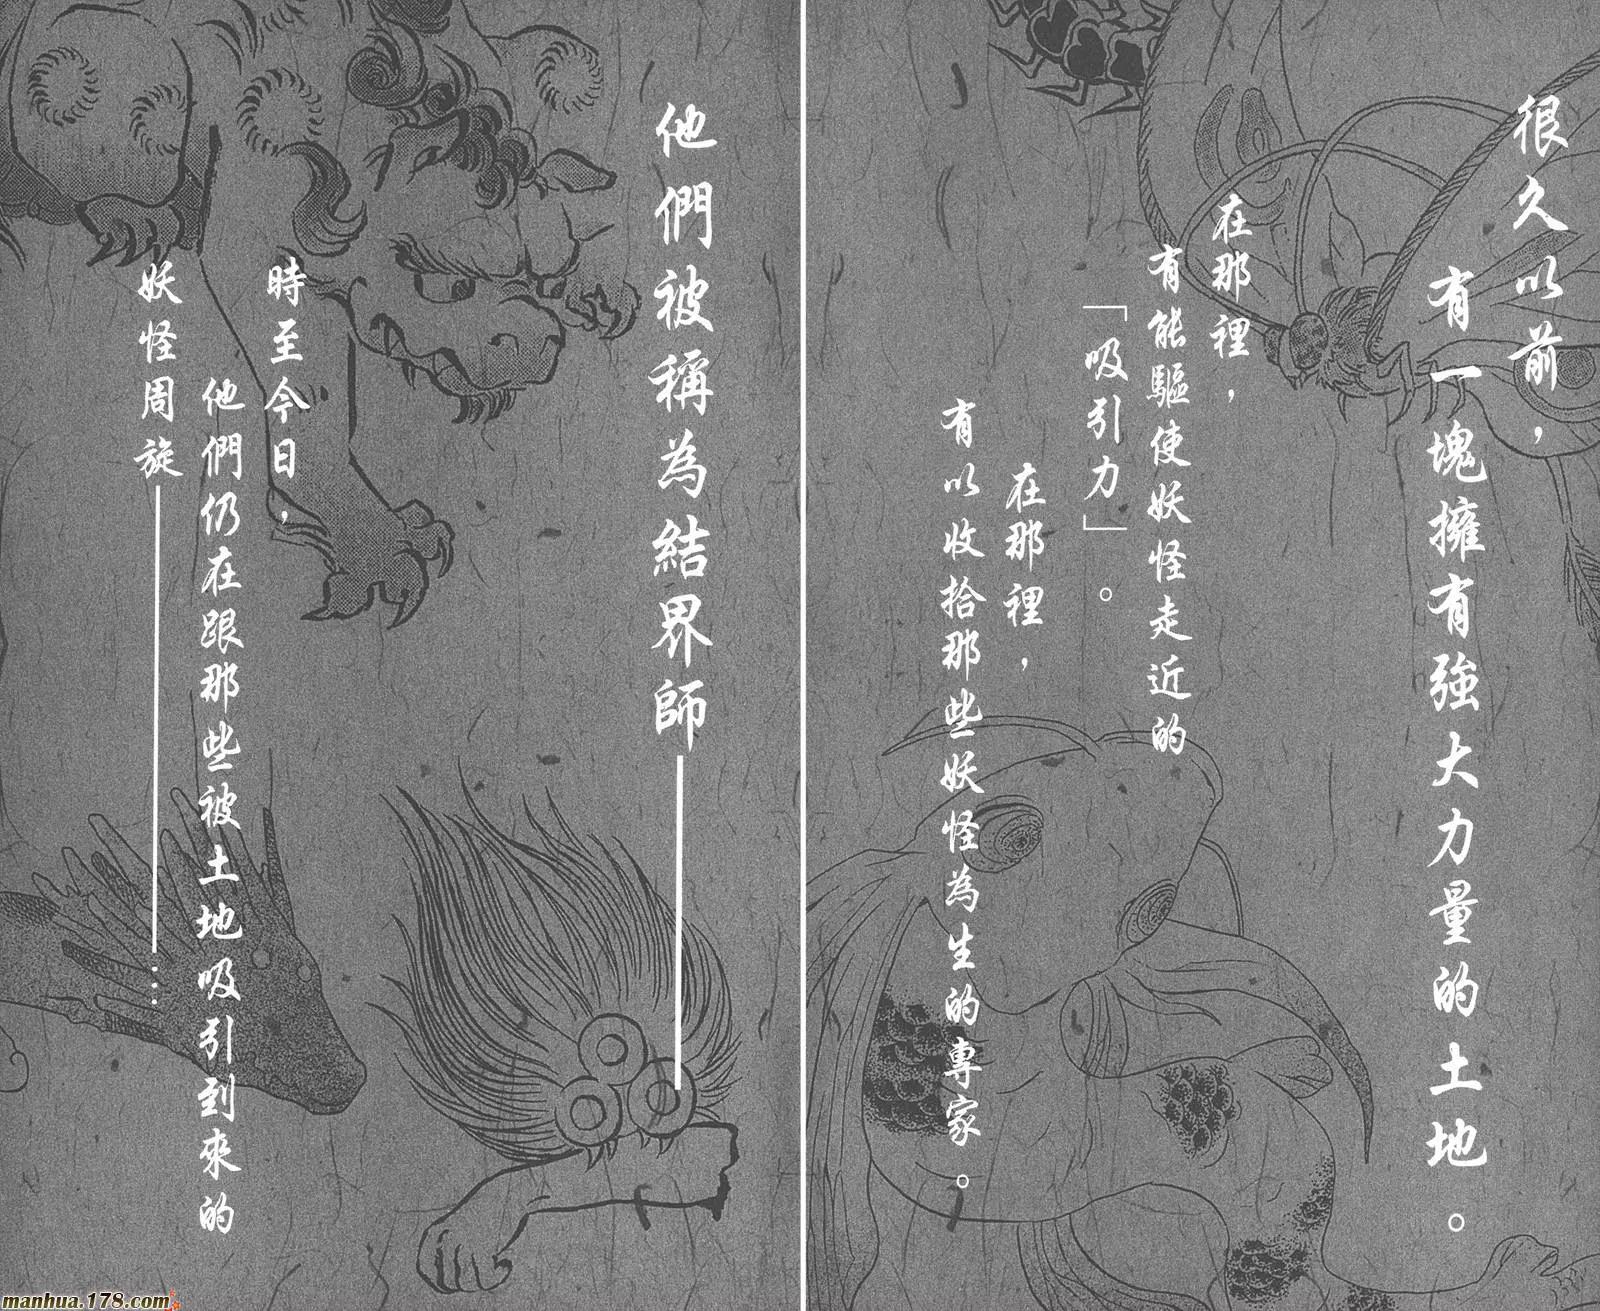 很久以前，
有一塊擁有強大力量的土地。
在那裡，
有能驅使妖怪走近的
「吸引力」。
在那裡，
有以收拾那些妖怪為生的專家。
他們被稱為結界師——
時至今日，
他們仍在跟那些被土地吸引到來的
妖怪周旋——…
manhua.178.com